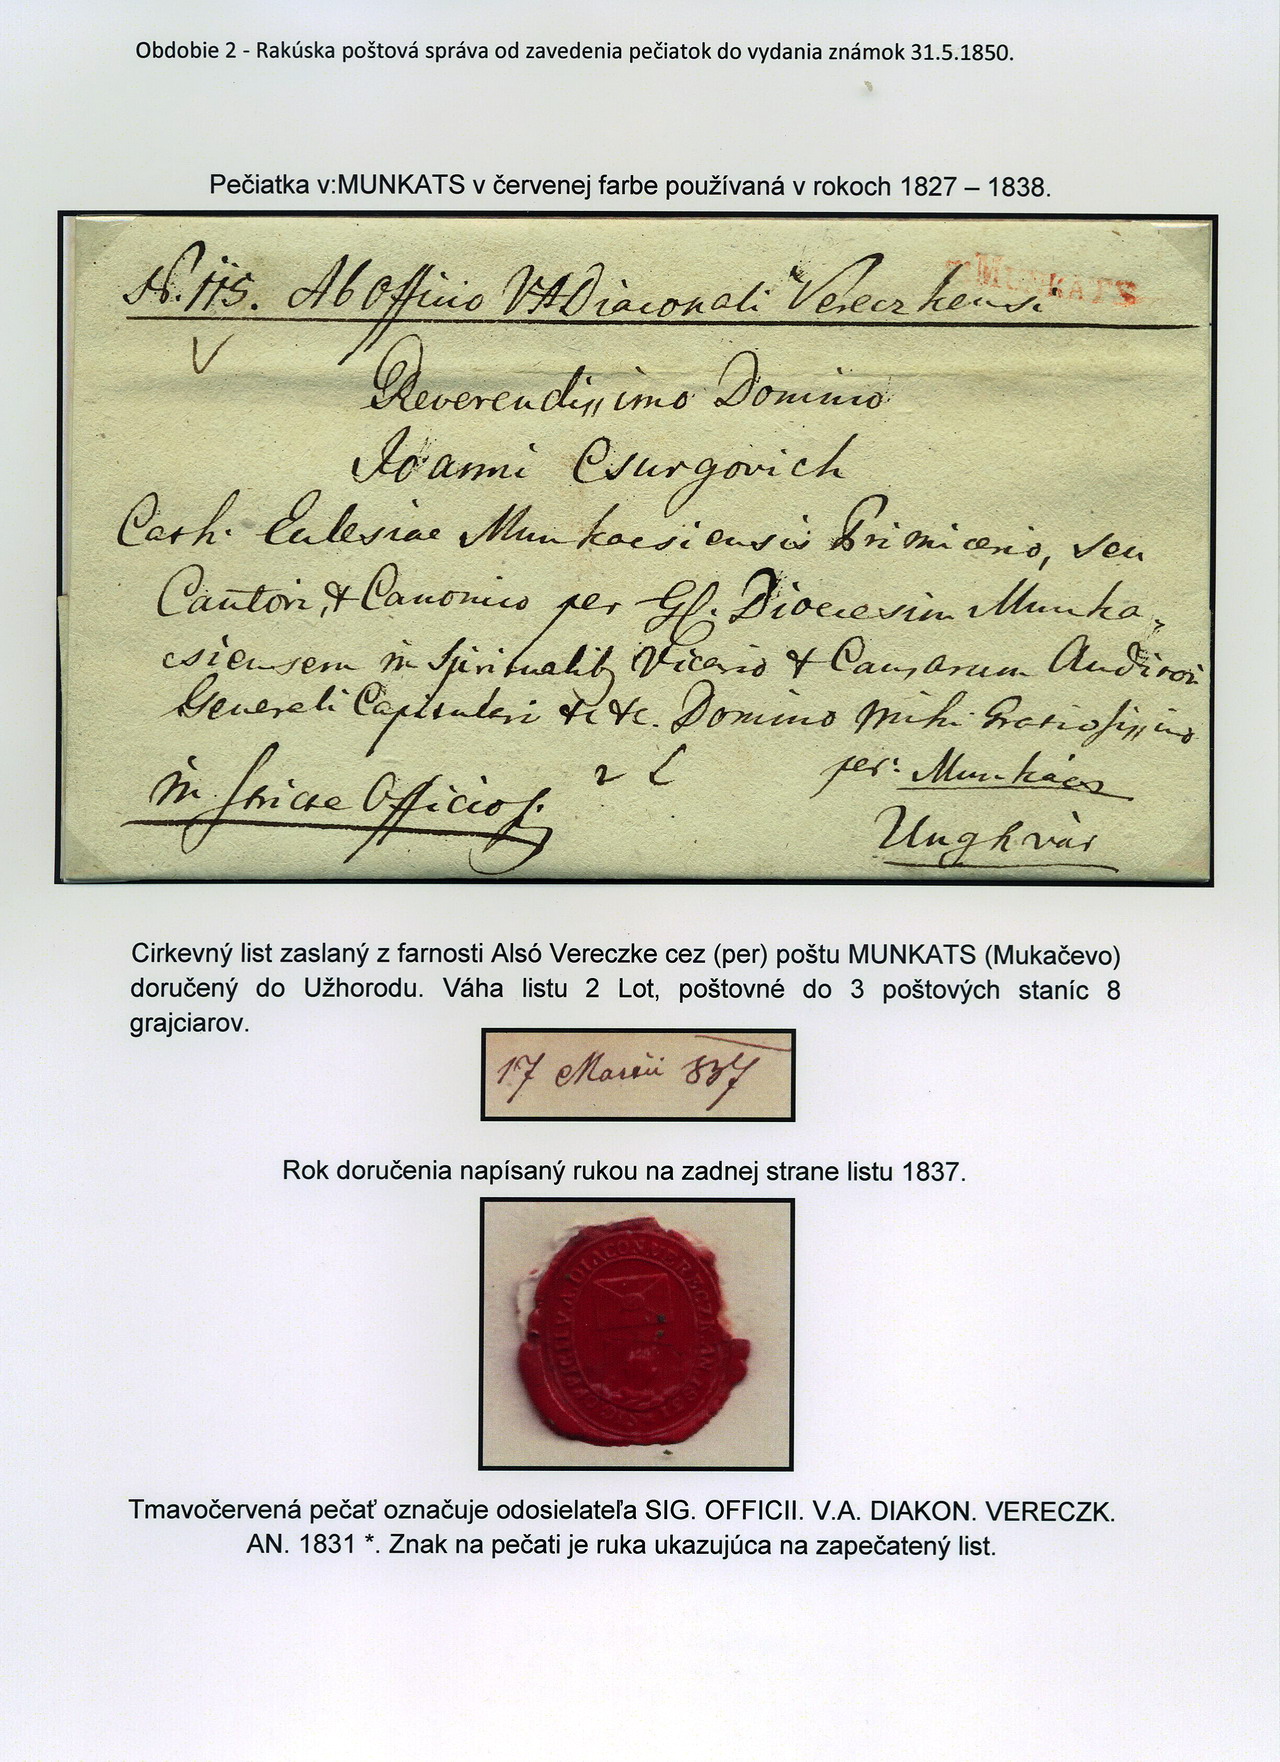 Obdobie 2 - Rakúska poštová správa od zavedenia pečiatok do vydania známok 31.5.1850.
Pečiatka v:MUNKATS v červenej farbe používaná v rokoch 1827 – 1838.
v:MUNKATS
N. 115. Ab Officio VADiaconali Vereczkensi
Reverendissimo Domino
Joanni Csurgovich
Cath. Eclesiae Munkacsiensis Primicerio, seu
Cantori, & Canonico per Gl. Diocesim Munka-
csiensem in Spiritualib Vicario & Causarum Auditori
Generali Capitulari &c &c. Domino mihi Gratiosissimo
in stricte Officios.
2 L
per. Munkács
Unghvár
Cirkevný list zaslaný z farnosti Alsó Vereczke cez (per) poštu MUNKATS (Mukačevo)
doručený do Užhorodu. Váha listu 2 Lot, poštovné do 3 poštových staníc 8
grajciarov.
17 Martii 837
Rok doručenia napísaný rukou na zadnej strane listu 1837.
SIG. OFFICII V. A. DIACON. VERECZK. AN. 1831
Tmavočervená pečať označuje odosielateľa SIG. OFFICII. V.A. DIAKON. VERECZK.
AN. 1831 *. Znak na pečati je ruka ukazujúca na zapečatený list.